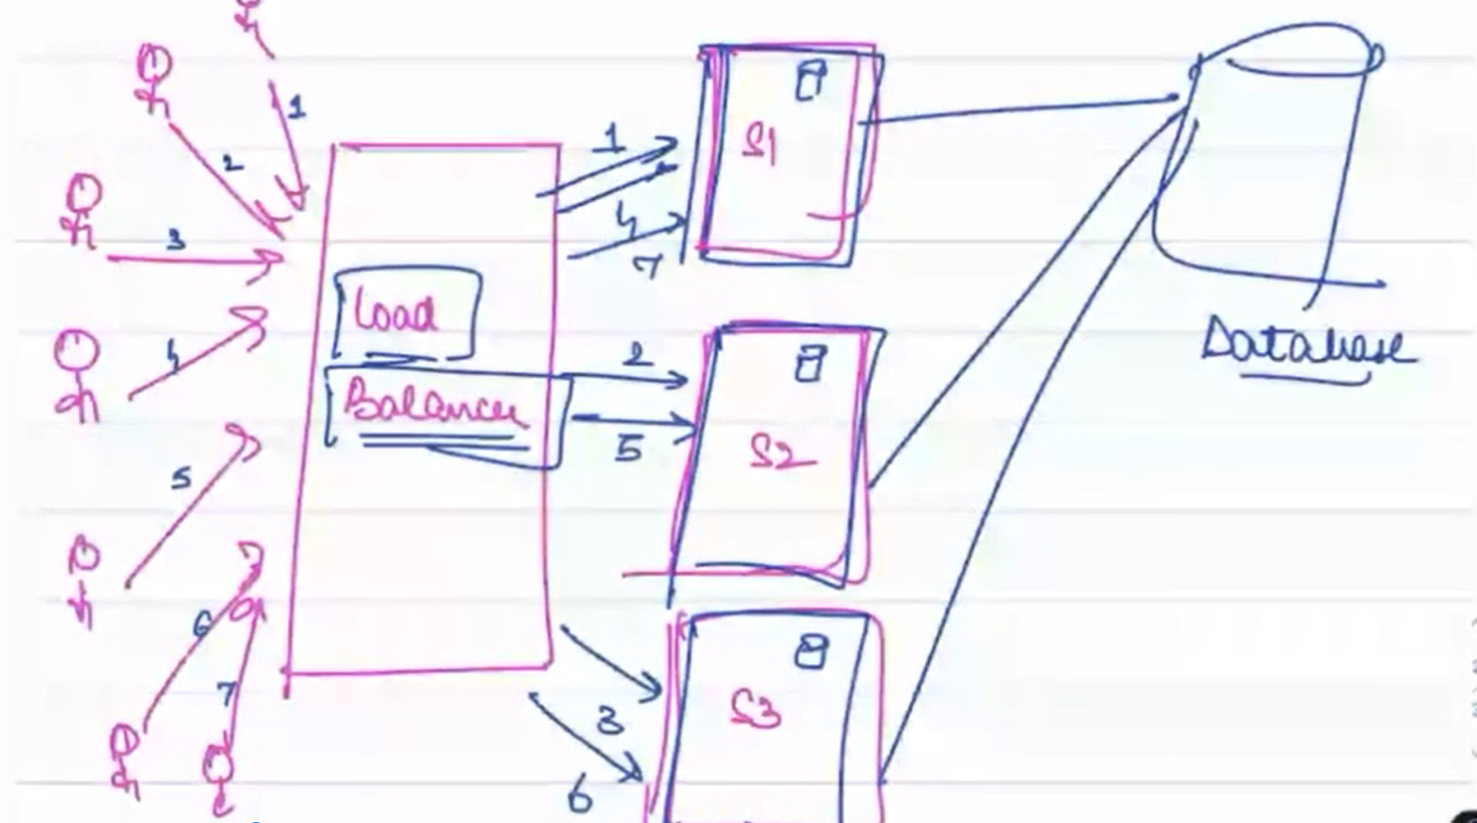 1
2
3
4
5
6
7
Load
Balancer
1
4
7
2
5
3
6
S1
S2
S3
Database